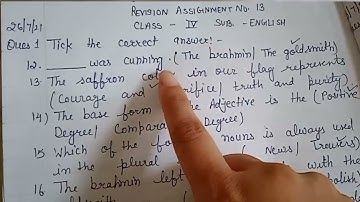 REVISION ASSIGNMENT NO. 13
26/7/21 CLASS - IV SUB. - ENGLISH
Ques 1 Tick the correct answer:-
12. _____ was cunning. (The brahmin/ The goldsmith)
13. The saffron in our flag represents
(Courage and / truth and purity)
14) The base form Adjective is the (Positive
Degree/ Degree)
15 Which of the nouns is always used
in the plural News/ Trousers)
16 The brahmin left with the